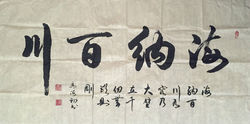 海纳百川
海
纳百
川有
容乃
大壁
立千
仞無
欲则
刚